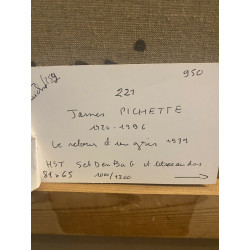 950
221
James PICHETTE
1920-1996
Le retour d'un gris 1979
HST SetDenBàG et titrée au dos
81x65 1000/1200